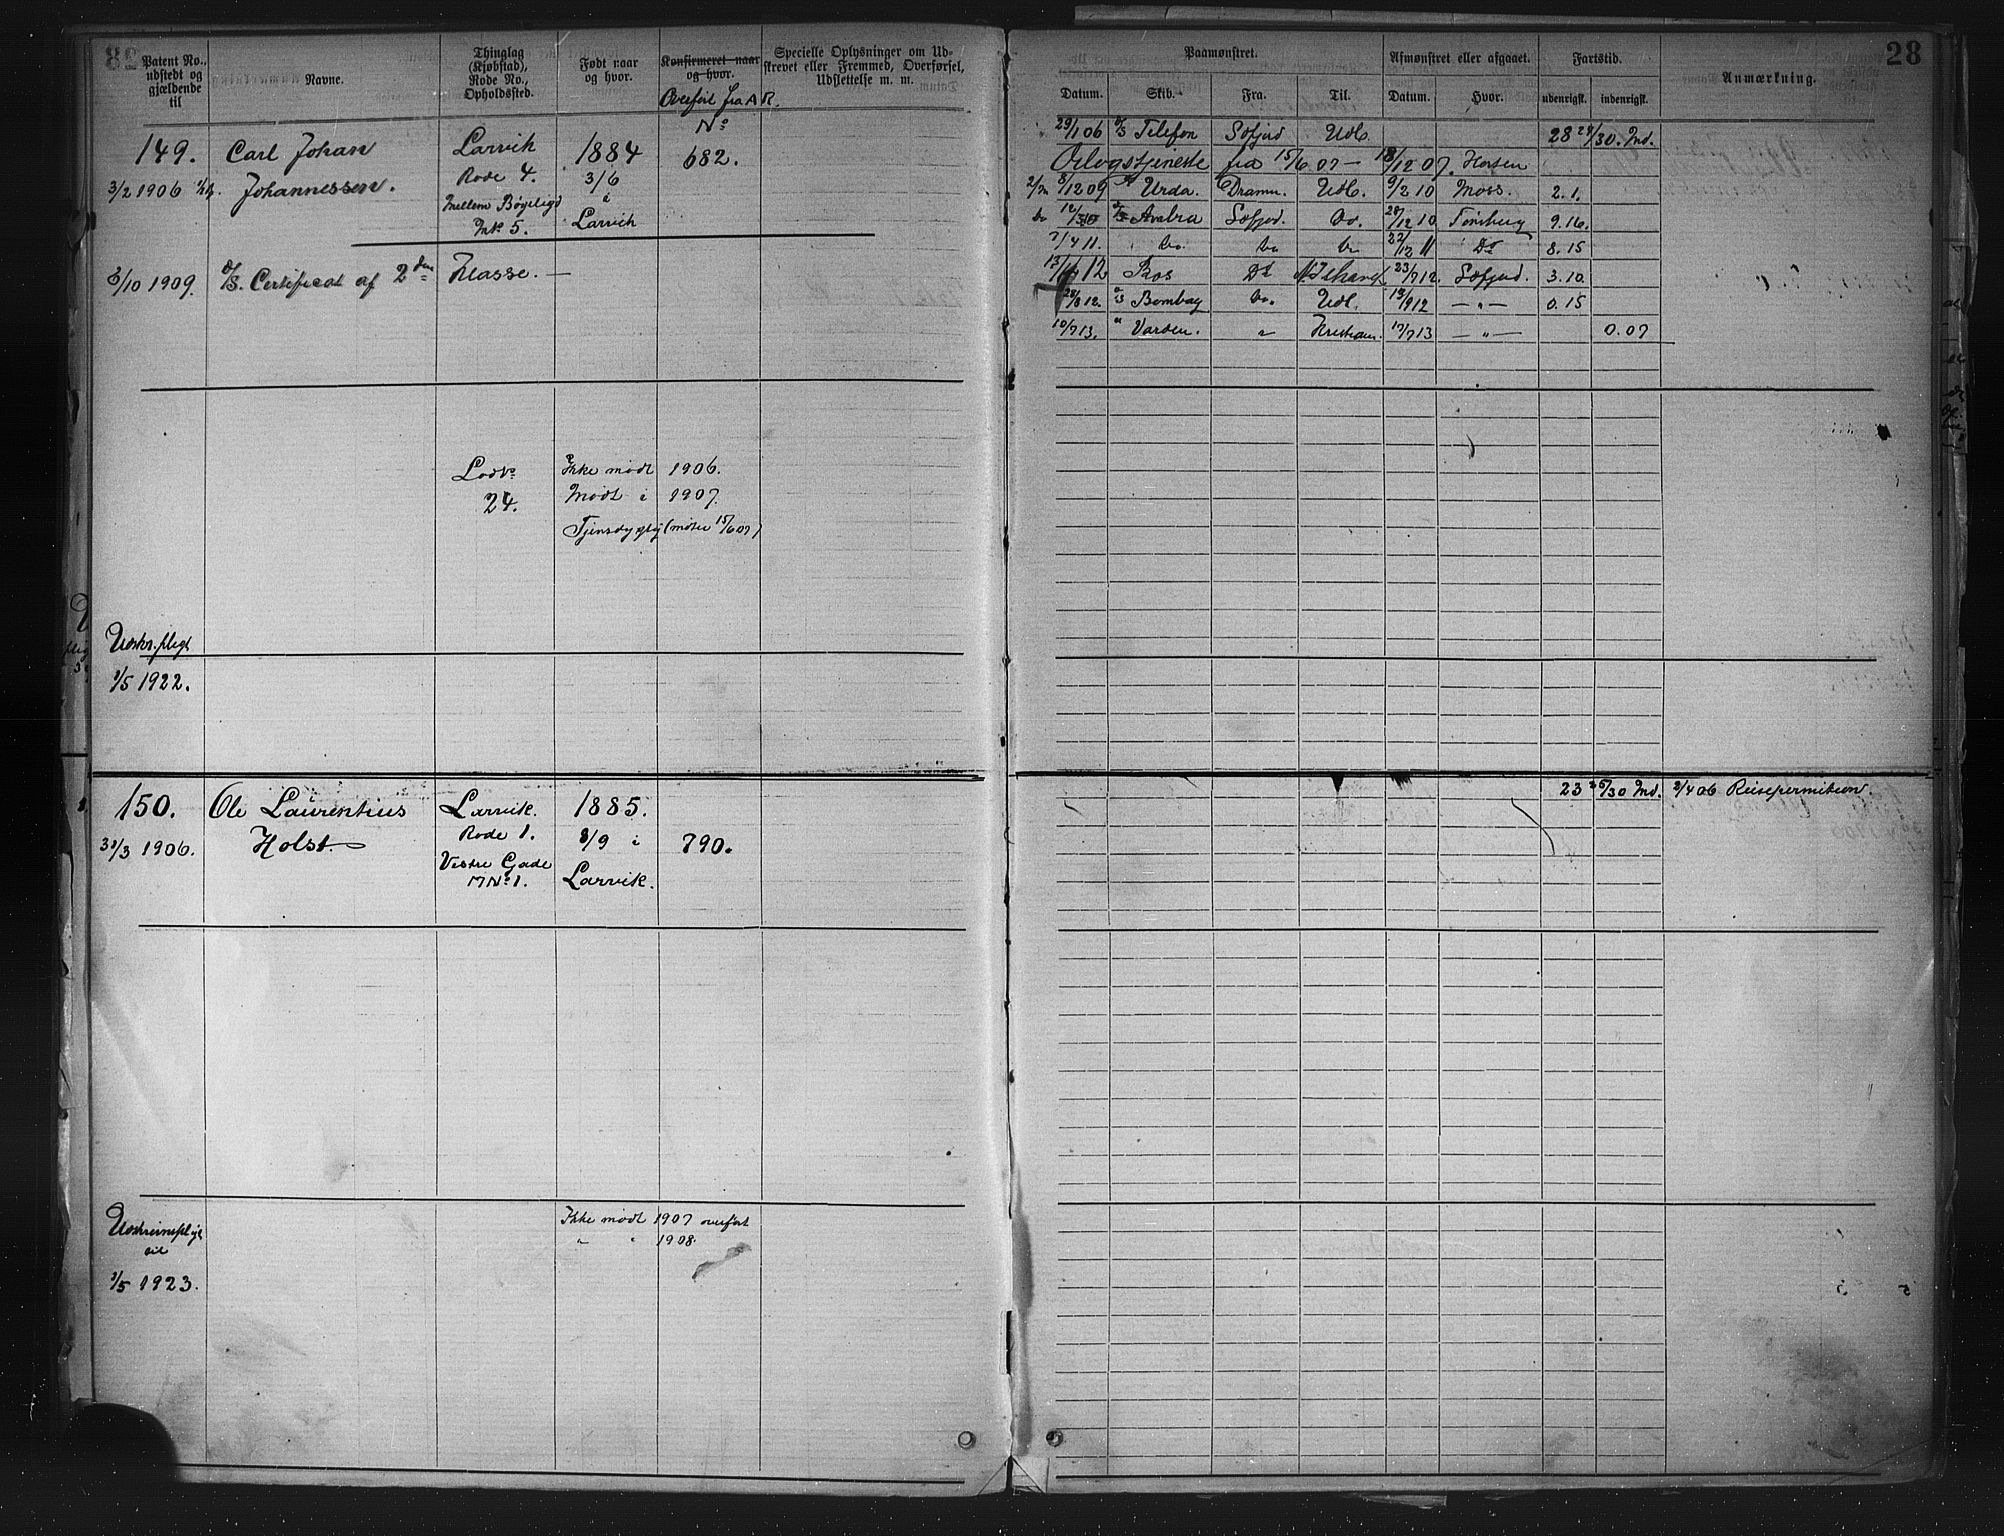 28
Patent No., udstedt og gjældende til
Navne.
Thinglag (Kjøbstad), Rode No., Opholdssted.
Født naar og hvor.
Konfirmeret naar og hvor.
Overført fra A R.
No
Specielle Oplysninger om Udstrevet eller Fremmed, Overførsel, Udslettelse m. m.
149.
Carl Johan
Larvik
1884
682.
3/2 1906
Johannessen.
Rode 4.
3/6
i
Mellem Bøgeligd
Mk 5.
Larvik
2/10 1909.
D/S. Certificat af 2den Klasse. —
Lodno
24.
Ikke mødt 1906.
Mødt i 1907.
Tjensdygtig (møter 15/6 07)
Udskr. pligt
1/5 1922.
150.
Ole Laurentius
Larvik.
1885.
31/3 1906.
Holst.
Rode 1.
8/9 i
790.
Vestre Gade
MNo 1.
Larvik.
Udskrivnspligt
til
1/5 1923.
Ikke mødt 1907 overført
" " 1908.
28
Paamønstret.
Afmønstret eller afgaaet.
Fartstid.
Anmærkning.
Datum.
Skib.
Fra:
Til.
Datum.
Hvor.
udenrigsk.
indenrigsk.
29/1 06 D/S Telefon Søfjord Udl. 28 28/30. Md.
Orlogstjeneste fra 15/6 07 — 18/12 07. Horten
2/m 8/12 09 Urda. Dramn. Udl. 9/2 10 Moss. 2.1.
Do D/S Avebra Søfjord. Do. 28/12 10 Tønsberg 9.16.
7/4 11. " Do. Do Do 22/12 11 " Do 8.15
Bos Do 23/7 12. Søfjord. 3.10.
28/8 12. D/S Bombay Do. Udl. 13/9 12 — " — 0.15
10/7 13. " Varden. " Kristian. 17/7 13 — " — 0.07
23 25/30 Md. 2/4 06 Reisepermition